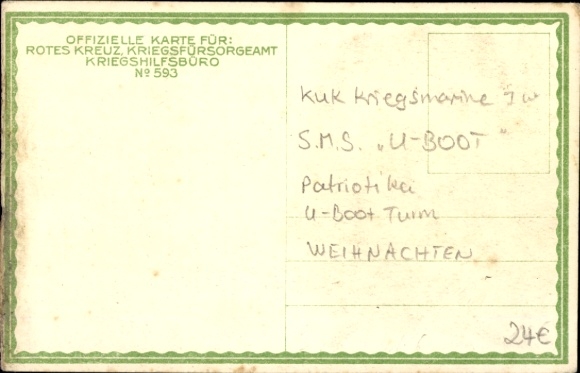 OFFIZIELLE KARTE FÜR:
ROTES KREUZ, KRIEGSFÜRSORGEAMT
KRIEGSHILFSBÜRO
No 593
KuK Kriegsmarine
S.M.S. „U-BOOT"
Patriotika
U-Boot Turm
WEIHNACHTEN
24€